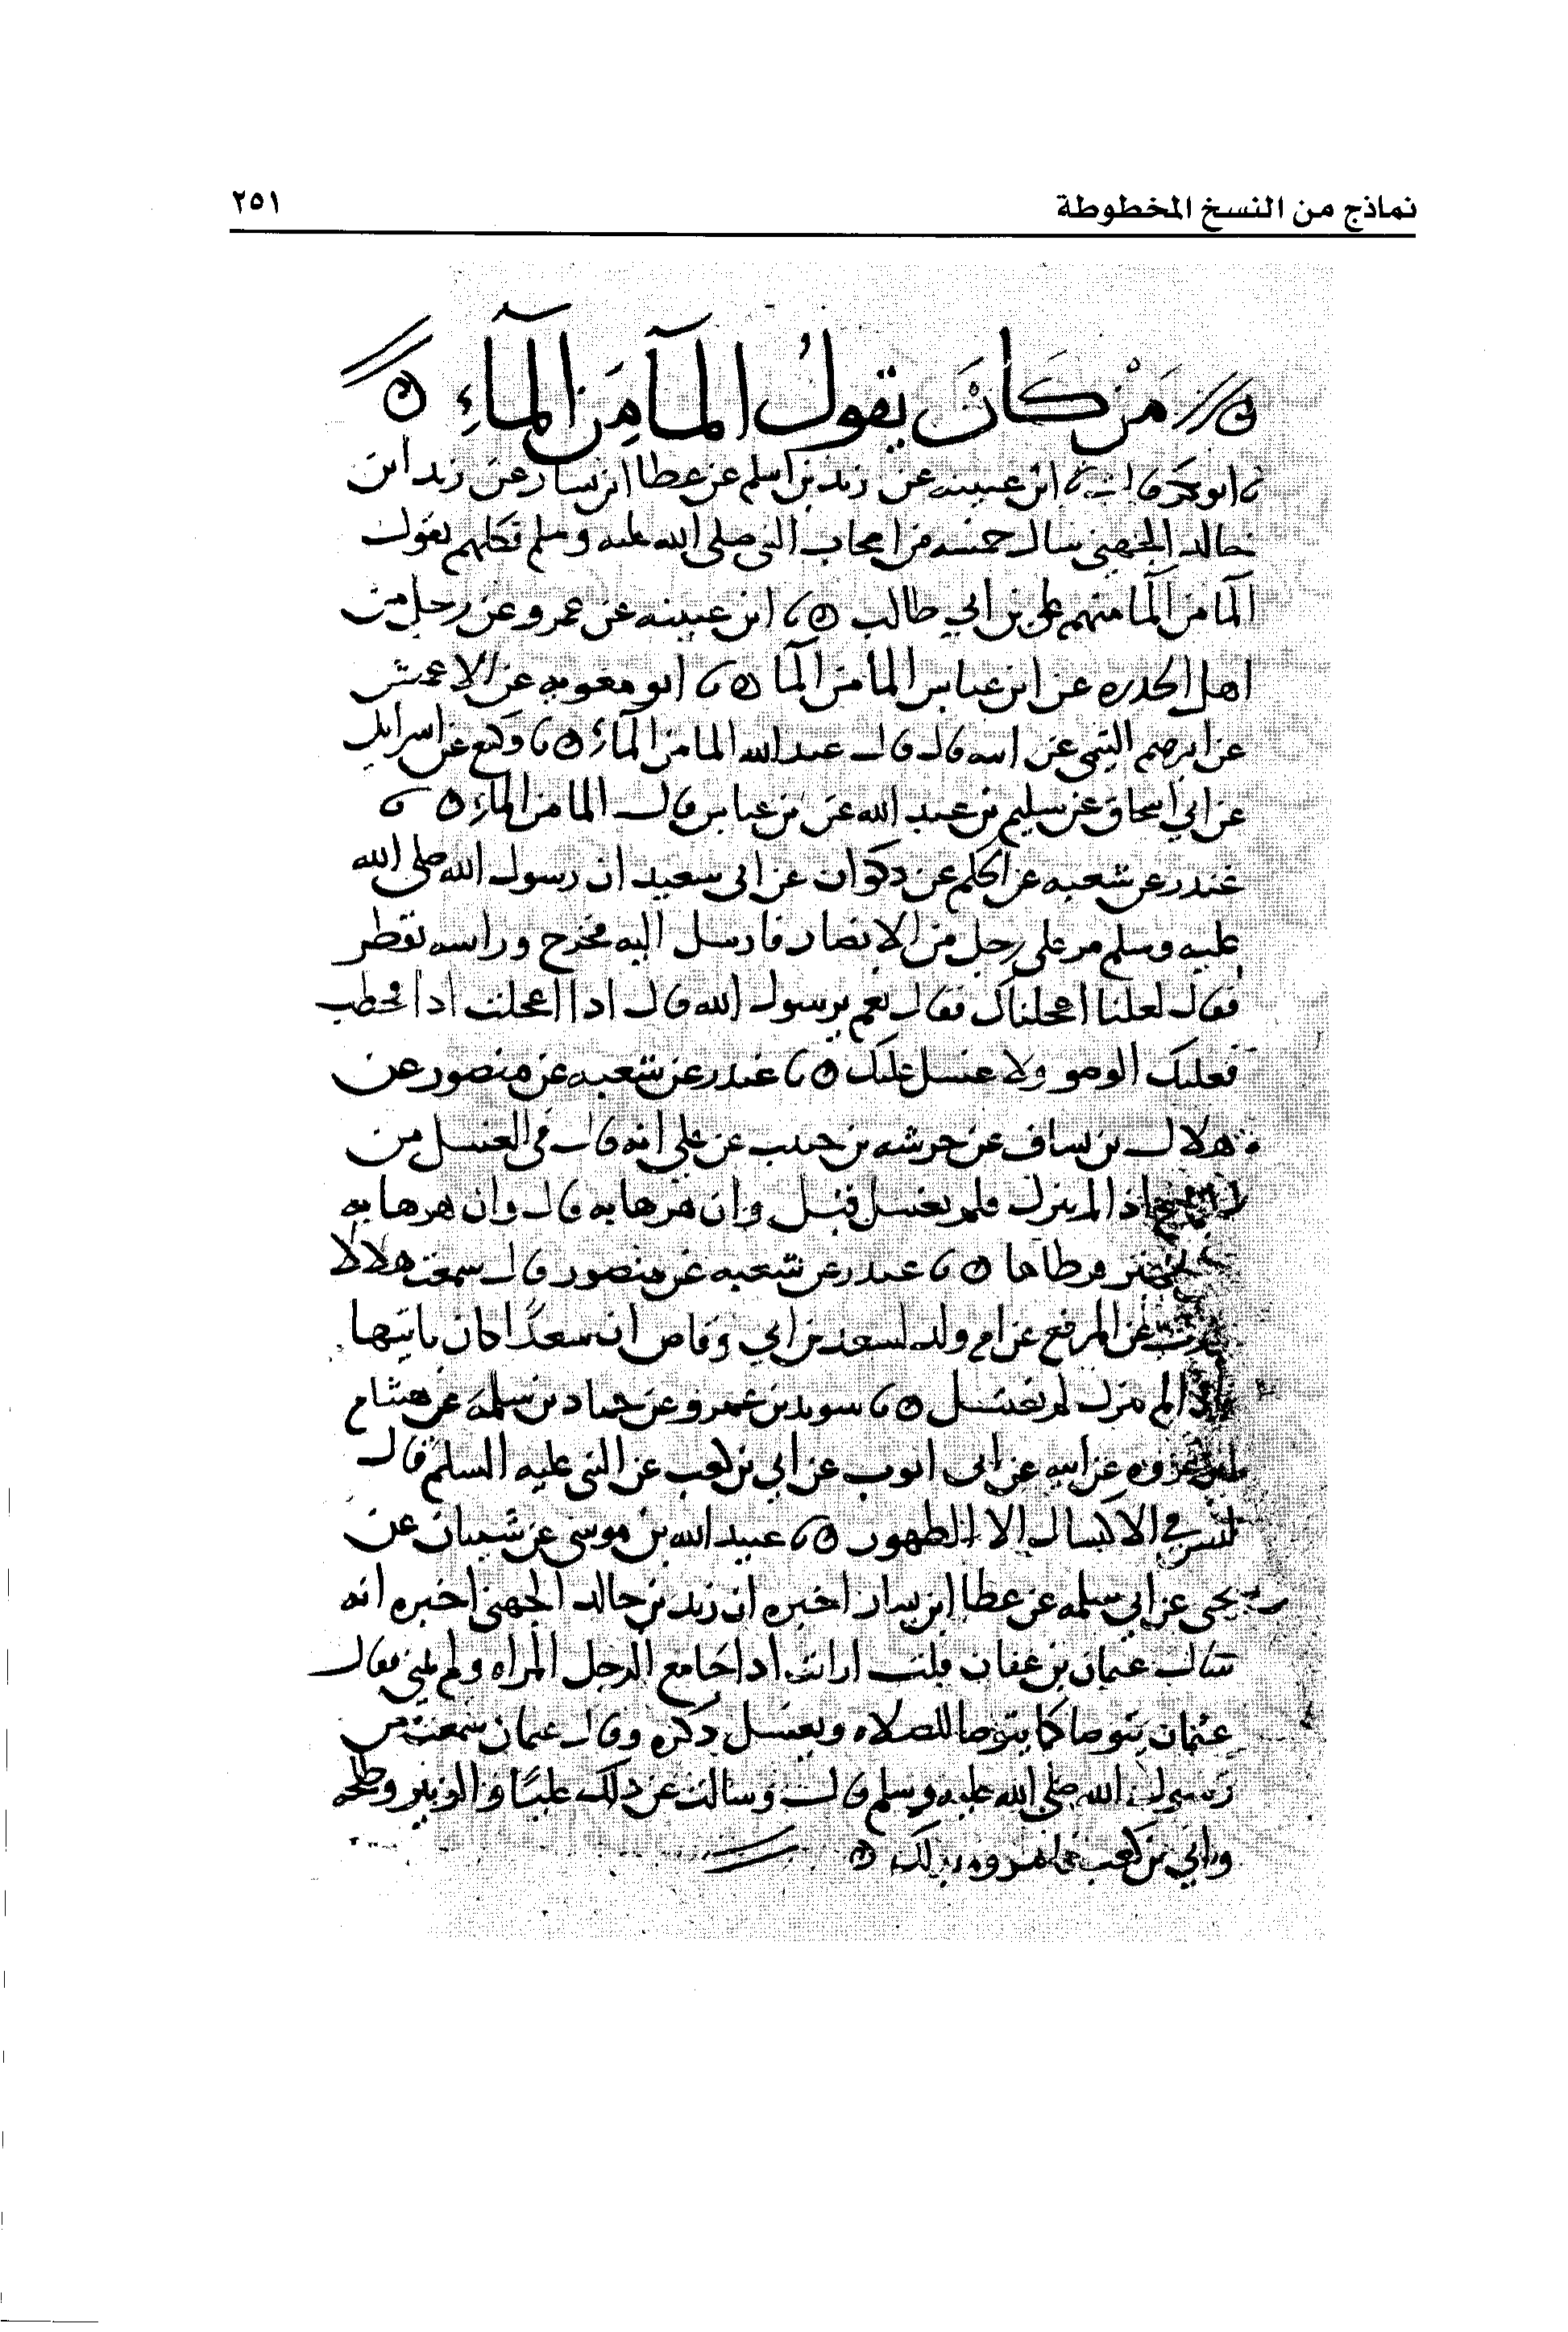 نماذج من النسخ المخطوطة ٢٥١
مَنْ كَانَ يقولُ المآ مِنَ المآءِ
ابو بكر قال ابن عيينه عن زيد بن اسلم عن عطا ابن يسار عن زيد ابن
خالد الجهني سال خمسه من اصحاب النبي صلى الله عليه وسلم فكلهم يقول
المآ من المآ منهم علي بن ابي طالب نا ابن عيينه عن عمرو عن رجل من
اهل عن ابن عباس المآ من المآ نا ابو معويه عن الاعمش
عن ابرهيم التيمي عن ابيه قال قال عبد الله الما من المآء نا وكيع عن اسرايل
عن ابي اسحاق عن سليم بن عبد الله عن بن عباس قال الما من المآء نا
غندر عن شعبه عن الحكم عن ذكوان عن ابي سعيد ان رسول الله صلى الله
عليه وسلم مر على رجل من الانصار فارسل اليه فخرج وراسه تقطر
فقال لعلنا اعجلناك فقال نعم يرسول الله قال اذا اعجلت اذا قحطب
فعليك الوضو ولا غسل عليك نا غندر عن شعبه عن منصور عن
هلال بن يساف عن خرشه بن حبيب عن علي انه قال في الغسل من
اذا لم ينزل فلم يغتسل قيل وان هزها به قال وان هزها به
حتى يهتز قرطاها نا غندر عن شعبه عن منصور قال سمعت هلالا
عن المرقع عن ام ولد لسعد بن ابي وقاص ان سعدًا كان ياتيها
فاذا لم ينزل لم يغتسل نا سويد بن عمرو عن حماد بن سلمه عن هشام
ابن عروه عن ابيه عن ابي ايوب عن ابي بن كعب عن النبي عليه السلم قال
ليس في الاكسال الا الطهور نا عبيد الله بن موسى عن شيبان عن
يحيى عن ابي سلمه عن عطا ابن يسار اخبره ان زيد بن خالد الجهني اخبره انه
سال عثمان بن عفان قلت ارايت اذا جامع الرجل المراه ولم يمني فقال
عثمان يتوضا كما يتوضا للصلاه ويغسل ذكره وقال عثمان سمعته من
رسول الله صلى الله عليه وسلم قال وسالت عن ذلك عليًا والزبير وطلحه
وابي بن كعب فامروه بذلك